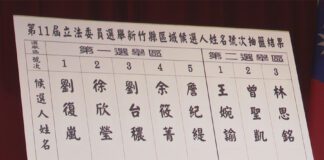 第11屆立法委員選舉新竹縣區域候選人姓名號次抽籤結果
選舉區 第一選舉區 第二選舉區
號次 1 2 3 4 5 1 2 3
候選人姓名 劉復嵐 徐欣瑩 劉台禎 余筱菁 詹紀緹 王婉諭 曾聖凱 林思銘